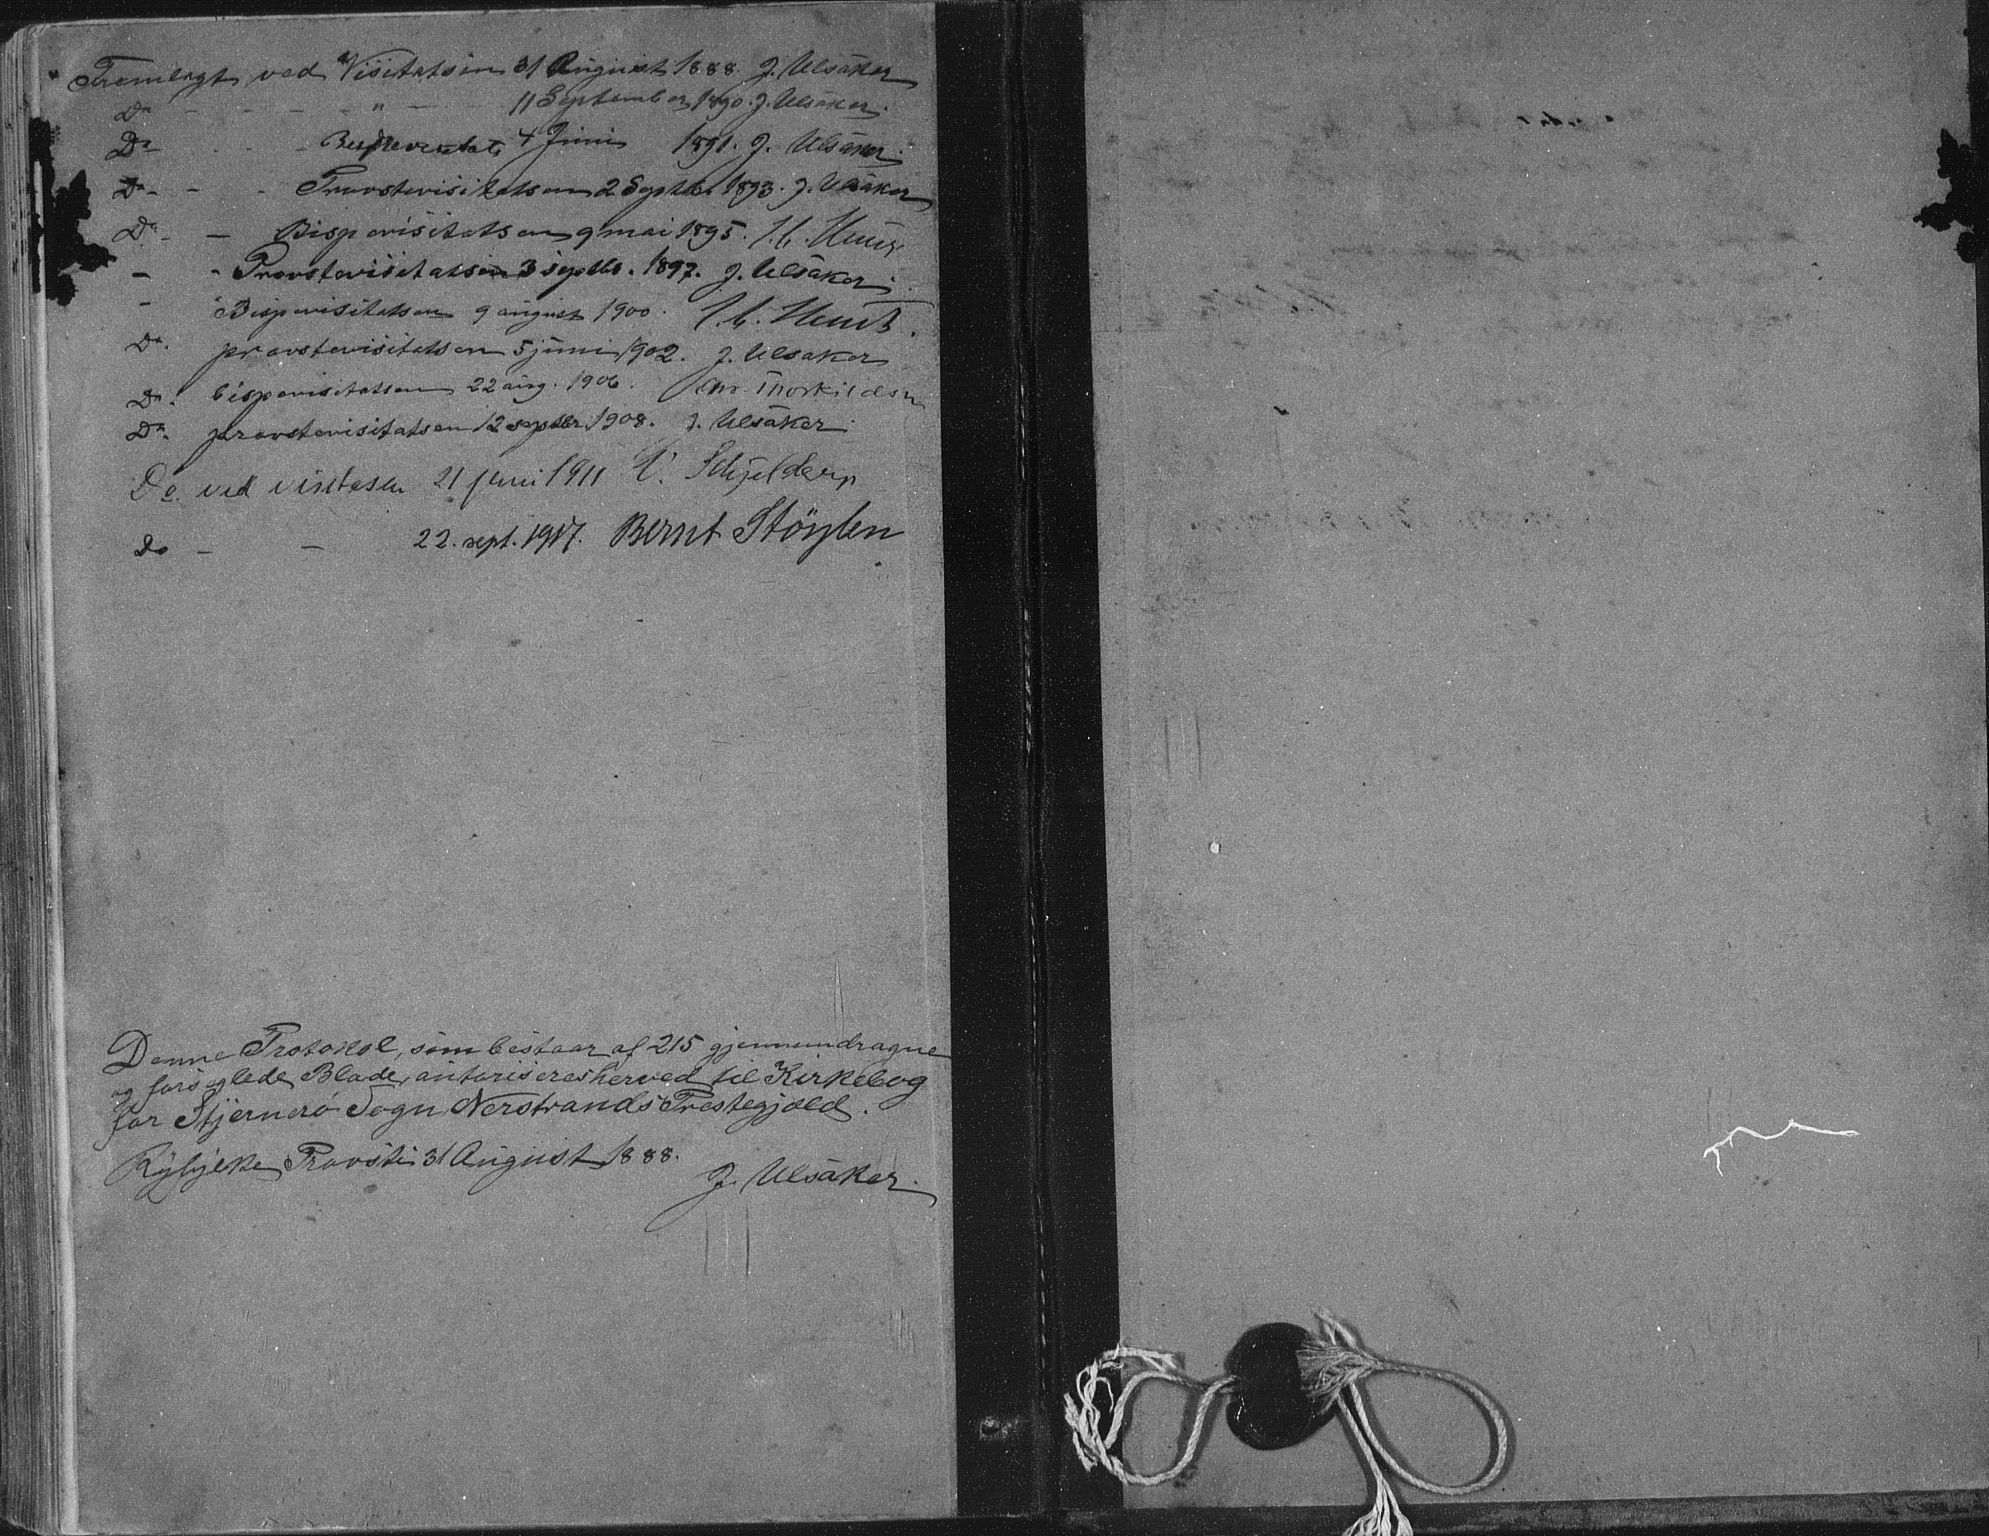 Fremlagt ved Visitatsen 31 August 1888. J. Ulsåker
Do - - - " - 11 September 1890. J. Ulsåker.
Do - - - 4 Juni 1891. J. Ulsåker.
Do - - - Provstevisitatsen 2 Septbr 1893. J. Ulsåker
Do - - Bispevisitatsen 9 mai 1895.
- - Provstevisitatsen 3 septbr. 1897. J. Ulsåker.
- " Bispevisitatsen 9 august 1900.
Do. provstevisitatsen 5 juni 1902. J. Ulsaker
Do. bispevisitatsen 22 aug. 1906. Chr. Thorkildsen
Do. provstevisitatsen 12 septbr 1908. J. Ulsåker.
Do. ved visitasen 21 juni 1911 Schjelderup
do - - 22. sept. 1917. Bernt Støylen
Denne Protokol, som bestaar af 215 gjennemdragne
og forseglede Blade, autoriseres herved til Kirkebog
for Stjernerö Sogn, Nerstrands Prestegjæld.
Ryfylke Provsti 31 August 1888.
J. Ulsåker.